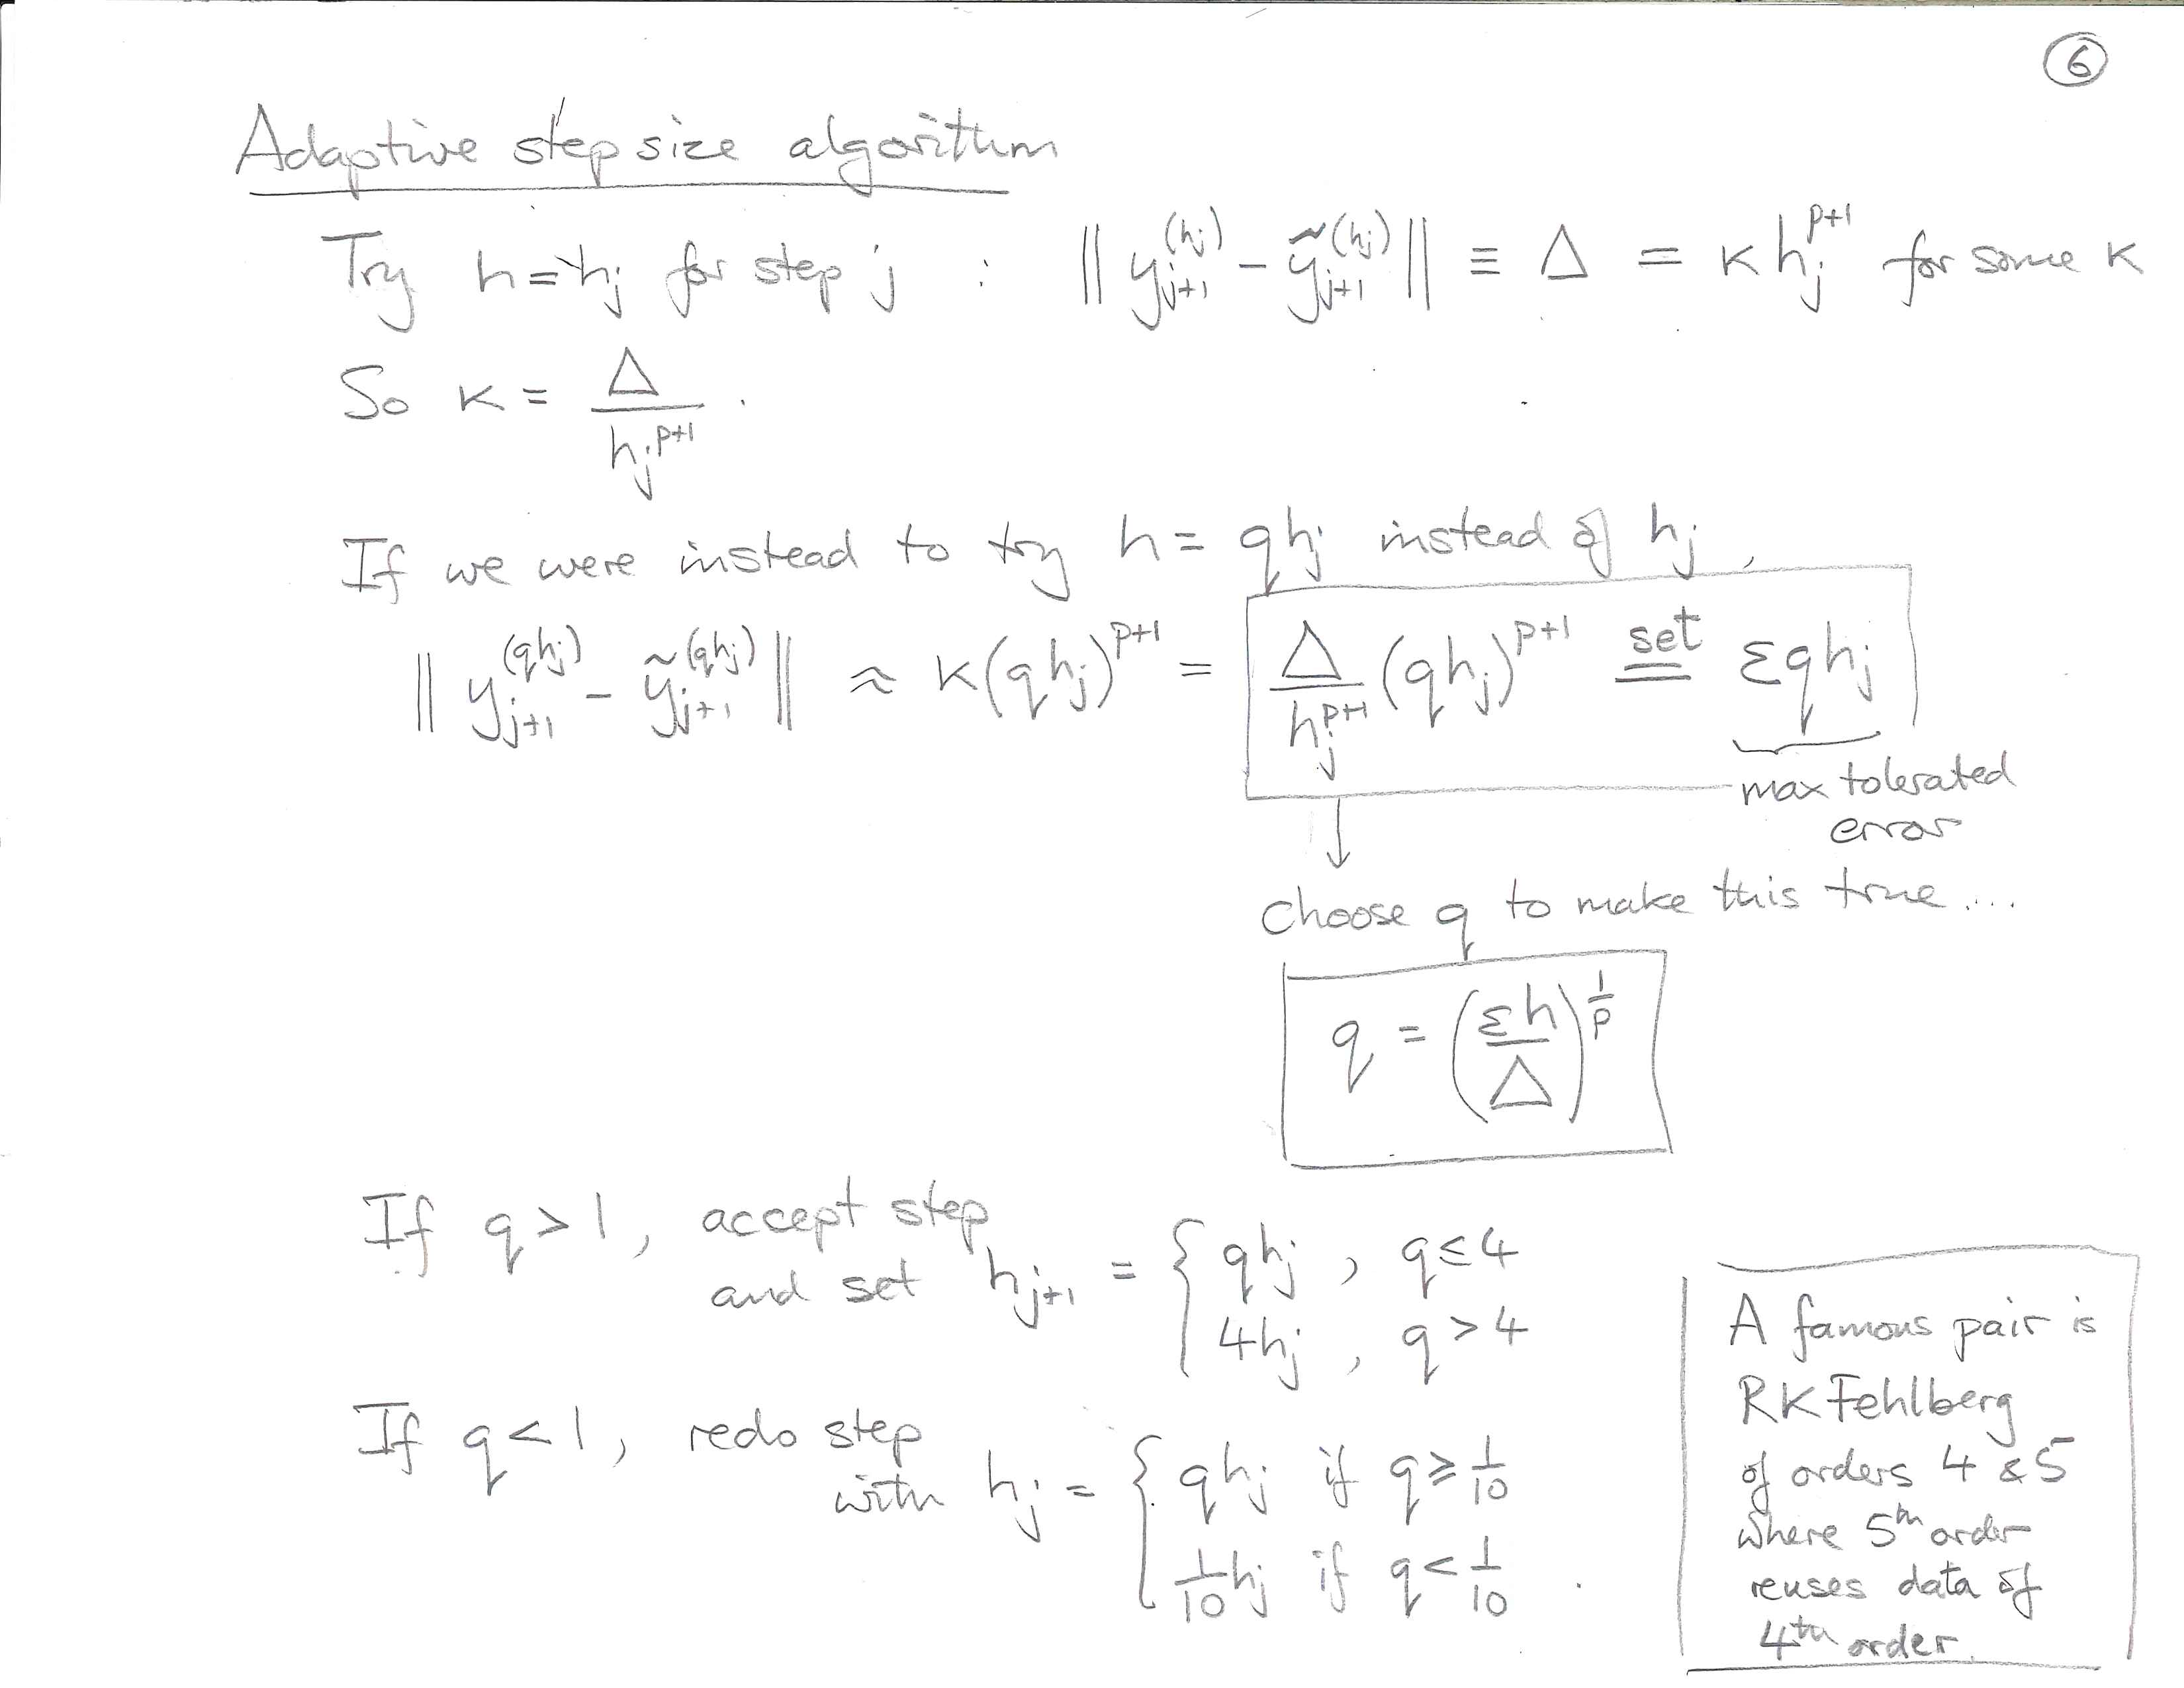 6
Adaptive stepsize algorithm
Try h = hj for step j : || y_{j+1}^{(hj)} - ỹ_{j+1}^{(hj)} || ≡ Δ = κ hj^{p+1} for some κ
So κ = Δ / hj^{p+1} .
If we were instead to try h = qhj instead of hj ,
|| y_{j+1}^{(qhj)} - ỹ_{j+1}^{(qhj)} || ≈ κ(qhj)^{p+1} = Δ / hj^{p+1} (qhj)^{p+1} set = εqhj
max tolerated
error
choose q to make this true ....
q = (εh / Δ)^{1/p}
If q > 1, accept step
and set h_{j+1} = { qhj , q ≤ 4
4hj , q > 4
If q < 1, redo step
with hj = { qhj if q ≥ 1/10
1/10 hj if q < 1/10 .
A famous pair is
RK Fehlberg
of orders 4 & 5
where 5th order
reuses data of
4th order.